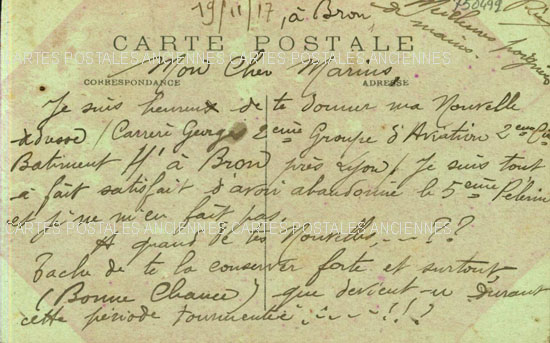 19/11/17, à Bron
750499
Meilleures poignées
de
mains.
CARTE POSTALE
CARTES POSTALES ANCIENNES CARTES POSTALES ANCIENNES
Mon Cher Marius,
CORRESPONDANCE ADRESSE
Je suis heureux de te donner ma Nouvelle
adresse / Carrère Georges 2eme Groupe d'Aviation 2eme Cie
Batiment H' à Bron près Lyon / Je suis tout
à fait satisfait d'avoir abandonné le 5eme Pelerin
et j' ne m'en fait pas.
CARTES POSTALES ANCIENNES CARTES POSTALES ANCIENNES
A quand de tes Nouvelles, --- ??
Tache de te la conserver forte et surtout
(Bonne Chance) que devient-u durant
cette période tourmentée :---- !!?